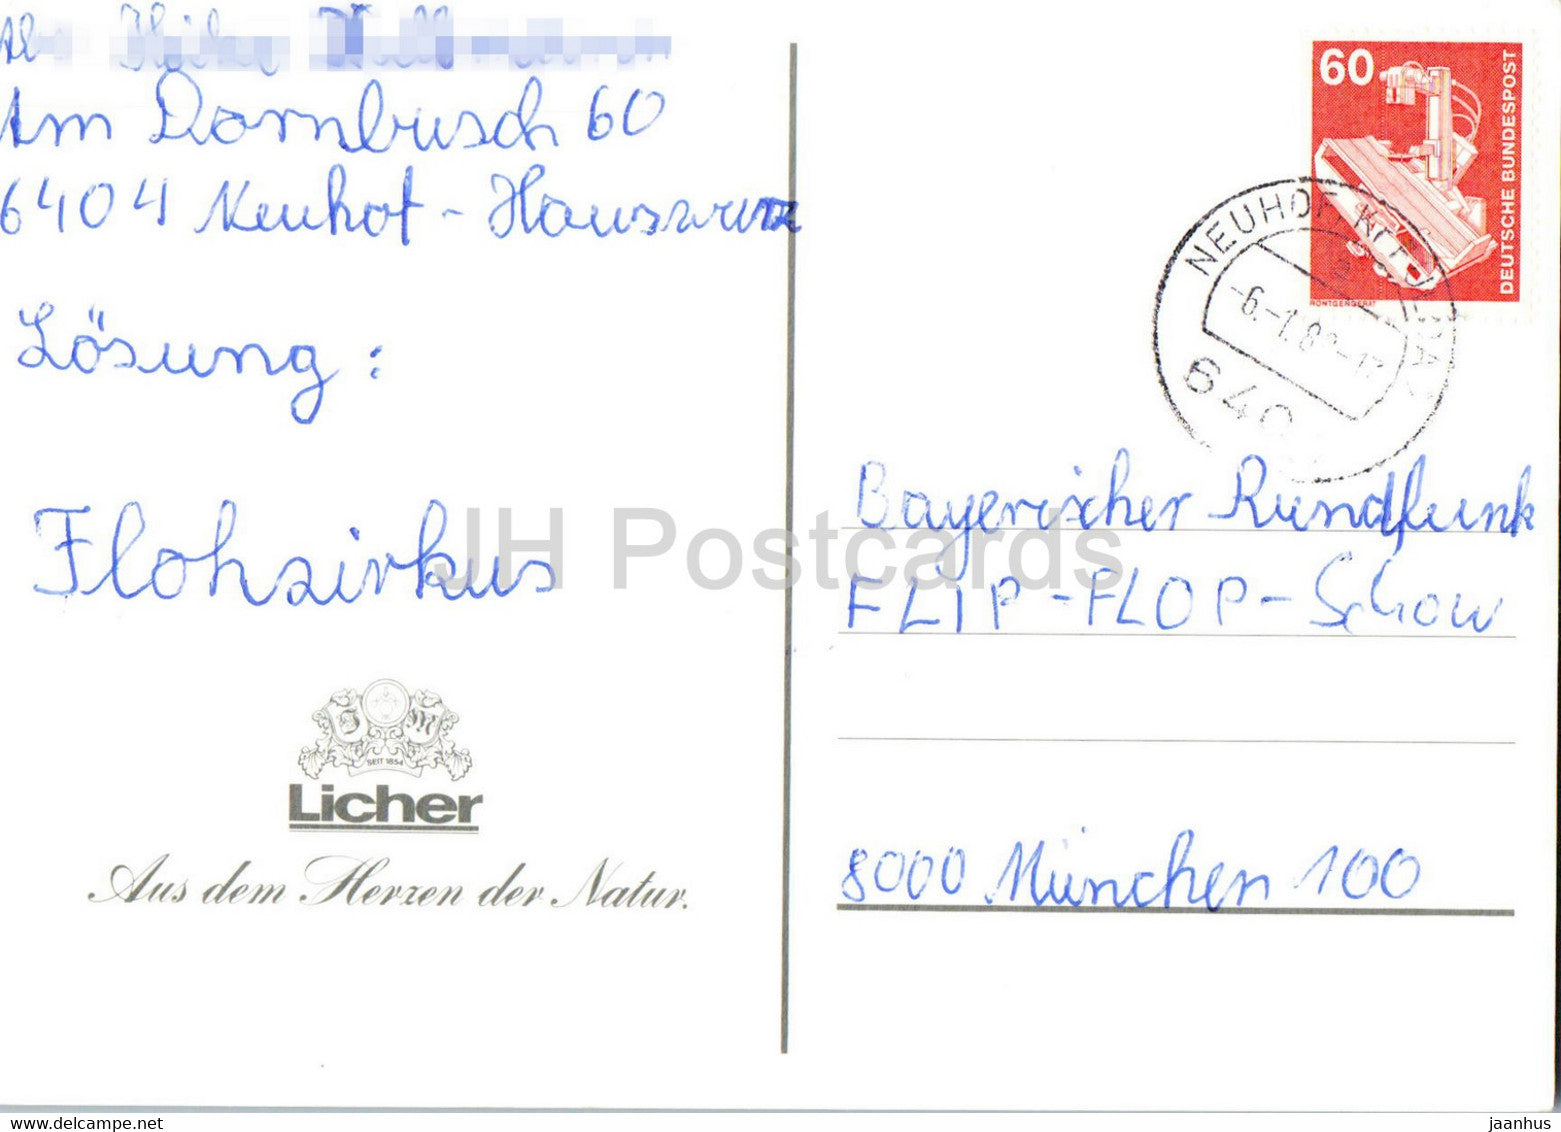 Am Dornbusch 60
6404 Neuhof - Hauswurz
Lösung:
Flohzirkus
SEIT 1854
Licher
Aus dem Herzen der Natur.
60
DEUTSCHE BUNDESPOST
RÖNTGENGERÄT
NEUHOF
-6.-1.8
640
Bayerischer Rundfunk
FLIP-FLOP-Schow
8000 München 100
JH Postcards
jaanhus